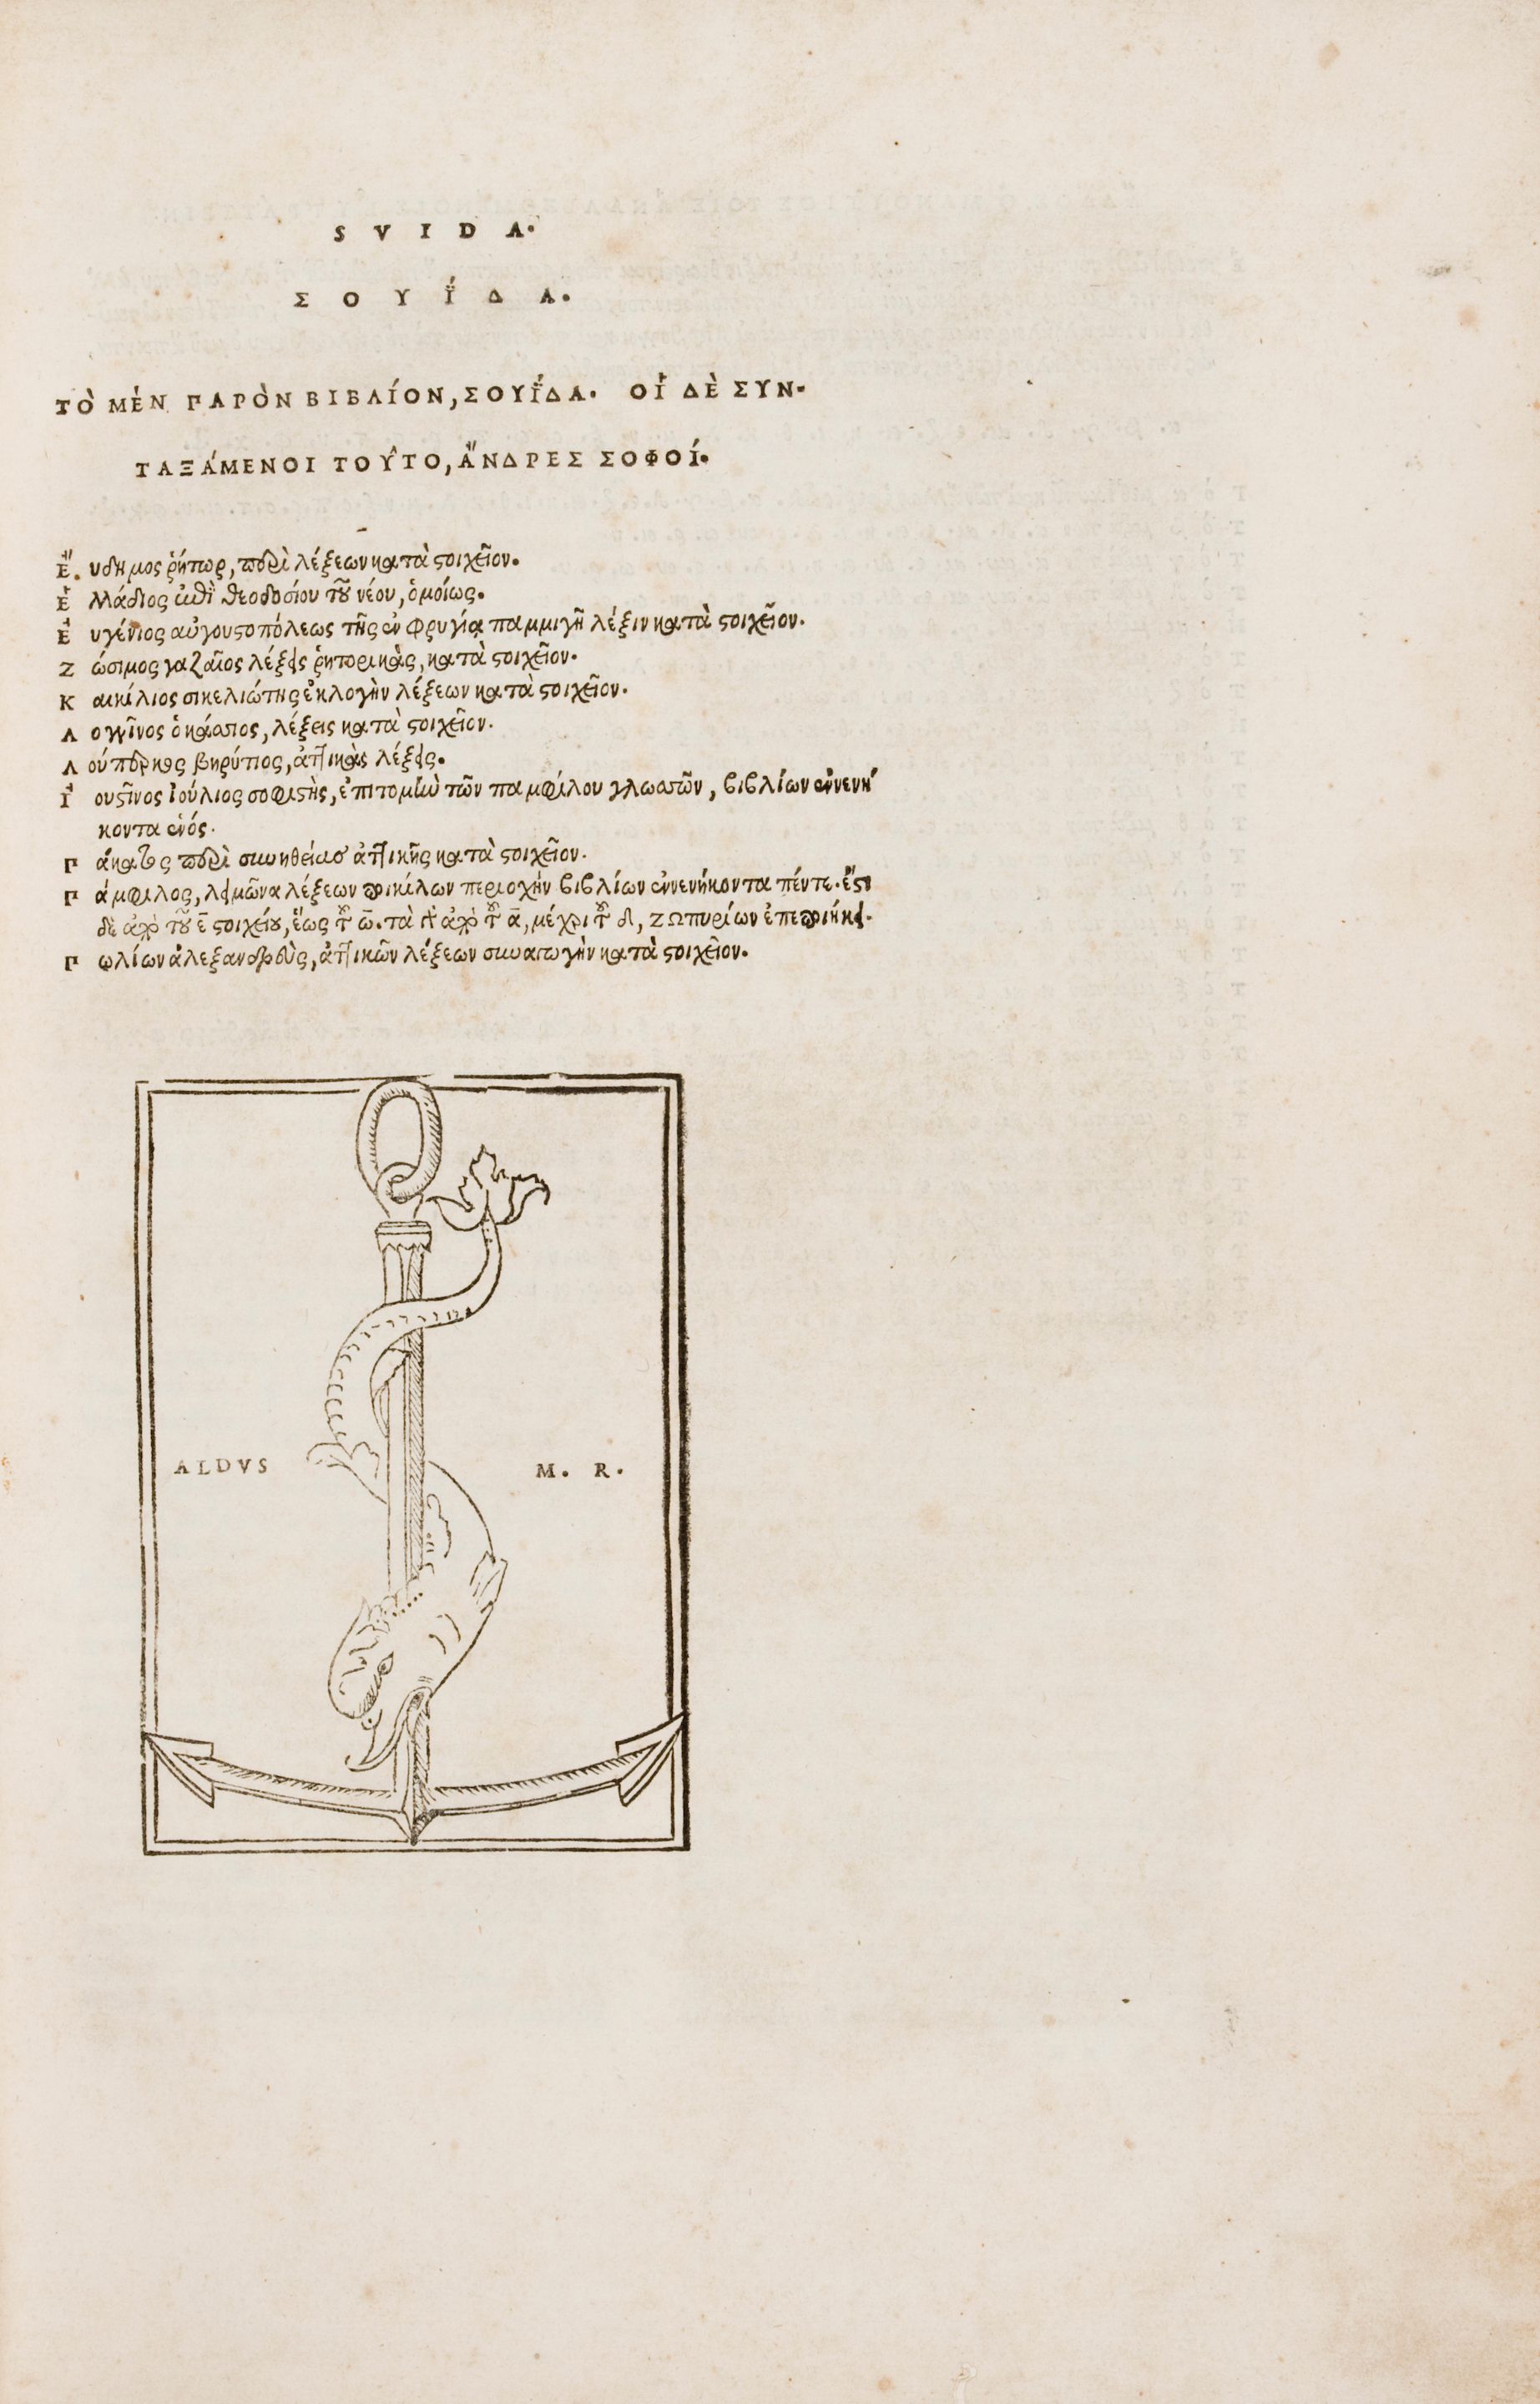 SVIDA.
ΣΟΥΐ́ΔΑ.
ΤῸ ΜῈΝ ΠΑΡῸΝ ΒΙΒΛΊΟΝ, ΣΟΥΐ́ΔΑ. ΟἹ ΔῈ ΣΥΝ-
ΤΑΞΆΜΕΝΟΙ ΤΟΥ͂ΤΟ, ἌΝΔΡΕΣ ΣΟΦΟΊ.
Ἔυδημος ῥήτωρ, περὶ λέξεων κατὰ στοιχεῖον.
Ἑλλάδιος ἐπὶ θεοδοσίου τοῦ νέου, ὁμοίως.
Ἐυγένιος αὐγουστοπόλεως τῆς ἐν φρυγίᾳ παμμιγῆ λέξιν κατὰ στοιχεῖον.
Ζώσιμος γαζαῖος λέξεις ῥητορικὰς, κατὰ στοιχεῖον.
Καικίλιος σικελιώτης ἐκλογὴν λέξεων κατὰ στοιχεῖον.
Λογγῖνος ὁ κάσσιος, λέξεις κατὰ στοιχεῖον.
Λούπερκος βηρύτιος, ἀττικὰς λέξεις.
Ἰουστῖνος ἰούλιος σοφιστὴς, ἐπιτομὴν τῶν παμφίλου γλωσσῶν, βιβλίων ἐννενή
κοντα ἑνός.
Πάκατος περὶ συνηθείας ἀττικῆς κατὰ στοιχεῖον.
Πάμφιλος, λειμῶνα λέξεων ποικίλων περιοχὴν βιβλίων ἐννενήκοντα πέντε. ἔστι
δὲ ἀπὸ τοῦ ε̄ στοιχείου, ἕως τοῦ ω̄. τὰ γὰρ ἀπὸ τοῦ ᾱ, μέχρι τοῦ δ, ζωπυρίων ἐπεποιήκει.
Πωλίων ἀλεξανδρεὺς, ἀττικῶν λέξεων συναγωγὴν κατὰ στοιχεῖον.
ALDVS M. R.